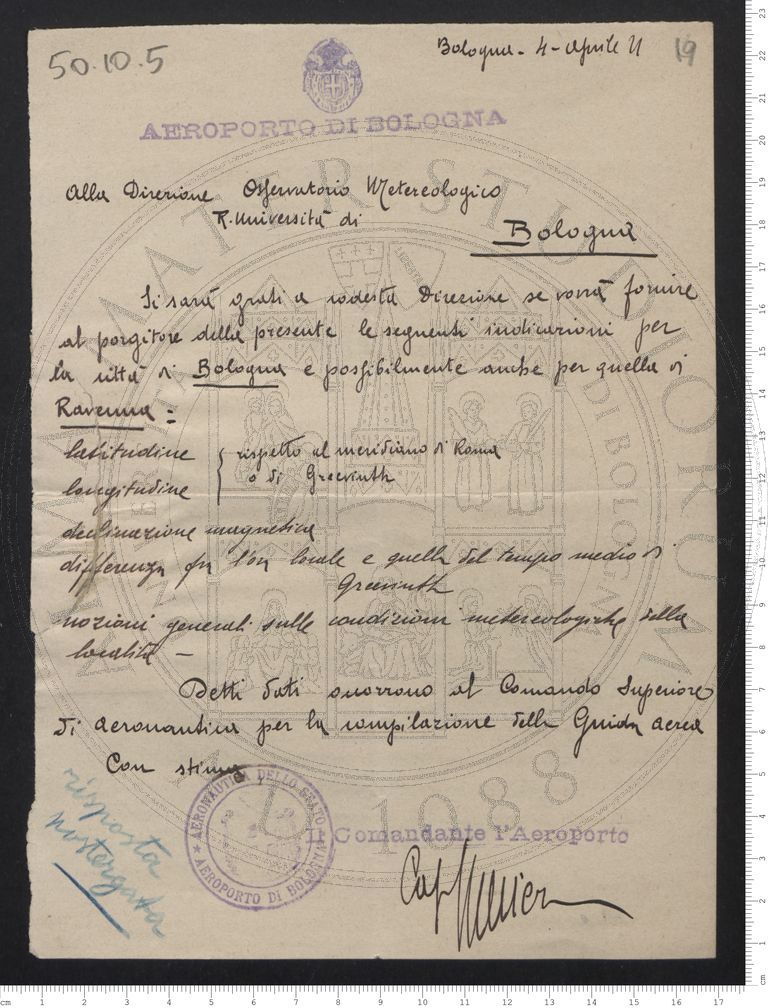 50.10.5
Bologna - 4 - Aprile 21
19
AEROPORTO DI BOLOGNA
Alla Direzione Osservatorio Metereologico
R. Università di
Bologna
Si sarà grati a codesta Direzione se vorrà fornire
al porgitore della presente le seguenti indicazioni per
la città di Bologna e possibilmente anche per quella di
Ravenna =
latitudine
longitudine
rispetto al meridiano di Roma
o di Greevinth
declinazione magnetica
differenza fra l'ora locale e quella del tempo medio di
Greevinth
nozioni generali sulle condizioni metereologiche della
località -
Detti dati occorrono al Comando Superiore
di aeronautica per la compilazione della Guida aerea
Con stima
AERONAUTICA DELLO STATO
★ AEROPORTO DI BOLOGNA ★
Il Comandante l'Aeroporto
Cap
risposta
a tergata
ALMA MATER STUDIORUM
UNIVERSITÀ DI BOLOGNA
A.D. 1088